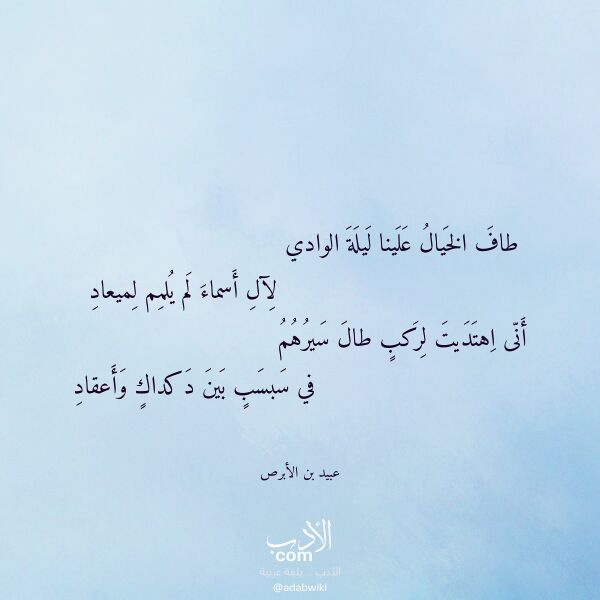 طافَ الخَيالُ عَلَينا لَيلَةَ الوادي
لِآلِ أَسماءَ لَم يُلمِم لِميعادِ
أَنّى اِهتَدَيتَ لِرَكبٍ طالَ سَيرُهُمُ
في سَبسَبٍ بَينَ دَكداكٍ وَأَعقادِ
عبيد بن الأبرص
الأدب
com
الأدب .. بلغة عربية
@adabwiki